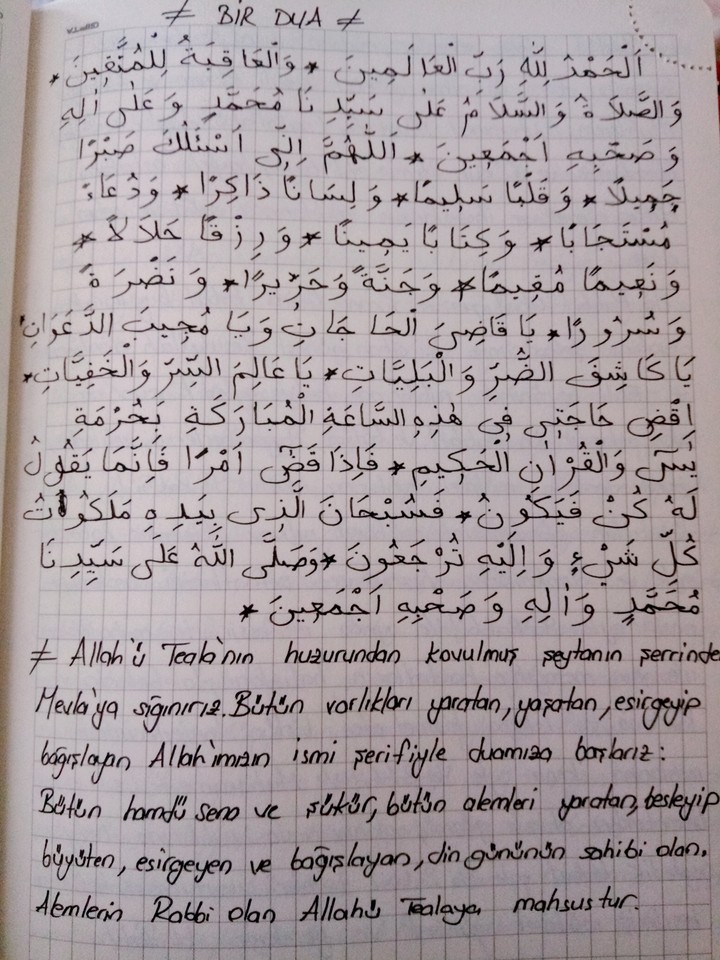 ≠ BİR DUA ≠
اَلْحَمْدُ لِلّٰهِ رَبِّ الْعَالَمِينَ * وَالْعَاقِبَةُ لِلْمُتَّقِينَ *
وَالصَّلَاةُ وَالسَّلَامُ عَلٰى سَيِّدِنَا مُحَمَّدٍ وَعَلٰى اٰلِهِ
وَصَحْبِهِ اَجْمَعِينَ * اَللّٰهُمَّ اِنِّى اَسْئَلُكَ صَبْرًا
جَمِيلًا * وَقَلْبًا سَلِيمًا * وَلِسَانًا ذَاكِرًا * وَدُعَاءً
مُسْتَجَابًا * وَكِتَابًا يَمِينًا * وَرِزْقًا حَلَالًا *
وَنَعِيمًا مُقِيمًا * وَجَنَّةً وَحَرِيرًا * وَنَضْرَةً
وَسُرُورًا * يَا قَاضِىَ الْحَاجَاتِ وَيَا مُجِيبَ الدَّعَوَاتِ
يَا كَاشِفَ الضُّرِّ وَالْبَلِيَّاتِ * يَا عَالِمَ السِّرِّ وَالْخَفِيَّاتِ *
اِقْضِ حَاجَتِى فِى هٰذِهِ السَّاعَةِ الْمُبَارَكَةِ بَحُرْمَةِ
يٰسٓ وَالْقُرْاٰنِ الْحَكِيمِ * فَاِذَا قَضٰٓى اَمْرًا فَاِنَّمَا يَقُولُ
لَهُ كُنْ فَيَكُونُ * فَسُبْحَانَ الَّذِى بِيَدِهِ مَلَكُوتُ
كُلِّ شَىْءٍ وَاِلَيْهِ تُرْجَعُونَ * وَصَلَّى اللّٰهُ عَلٰى سَيِّدِنَا
مُحَمَّدٍ وَاٰلِهِ وَصَحْبِهِ اَجْمَعِينَ *
≠ Allah'ü Teala'nın huzurundan kovulmuş şeytanın şerrinde
Mevla'ya sığınırız. Bütün varlıkları yaratan, yaşatan, esirgeyip
bağışlayan Allah'ımızın ismi şerifiyle duamıza başlarız:
Bütün hamdü sena ve şükür, bütün alemleri yaratan, besleyip
büyüten, esirgeyen ve bağışlayan, din gününün sahibi olan.
Alemlerin Rabbi olan Allahü Tealaya mahsustur.